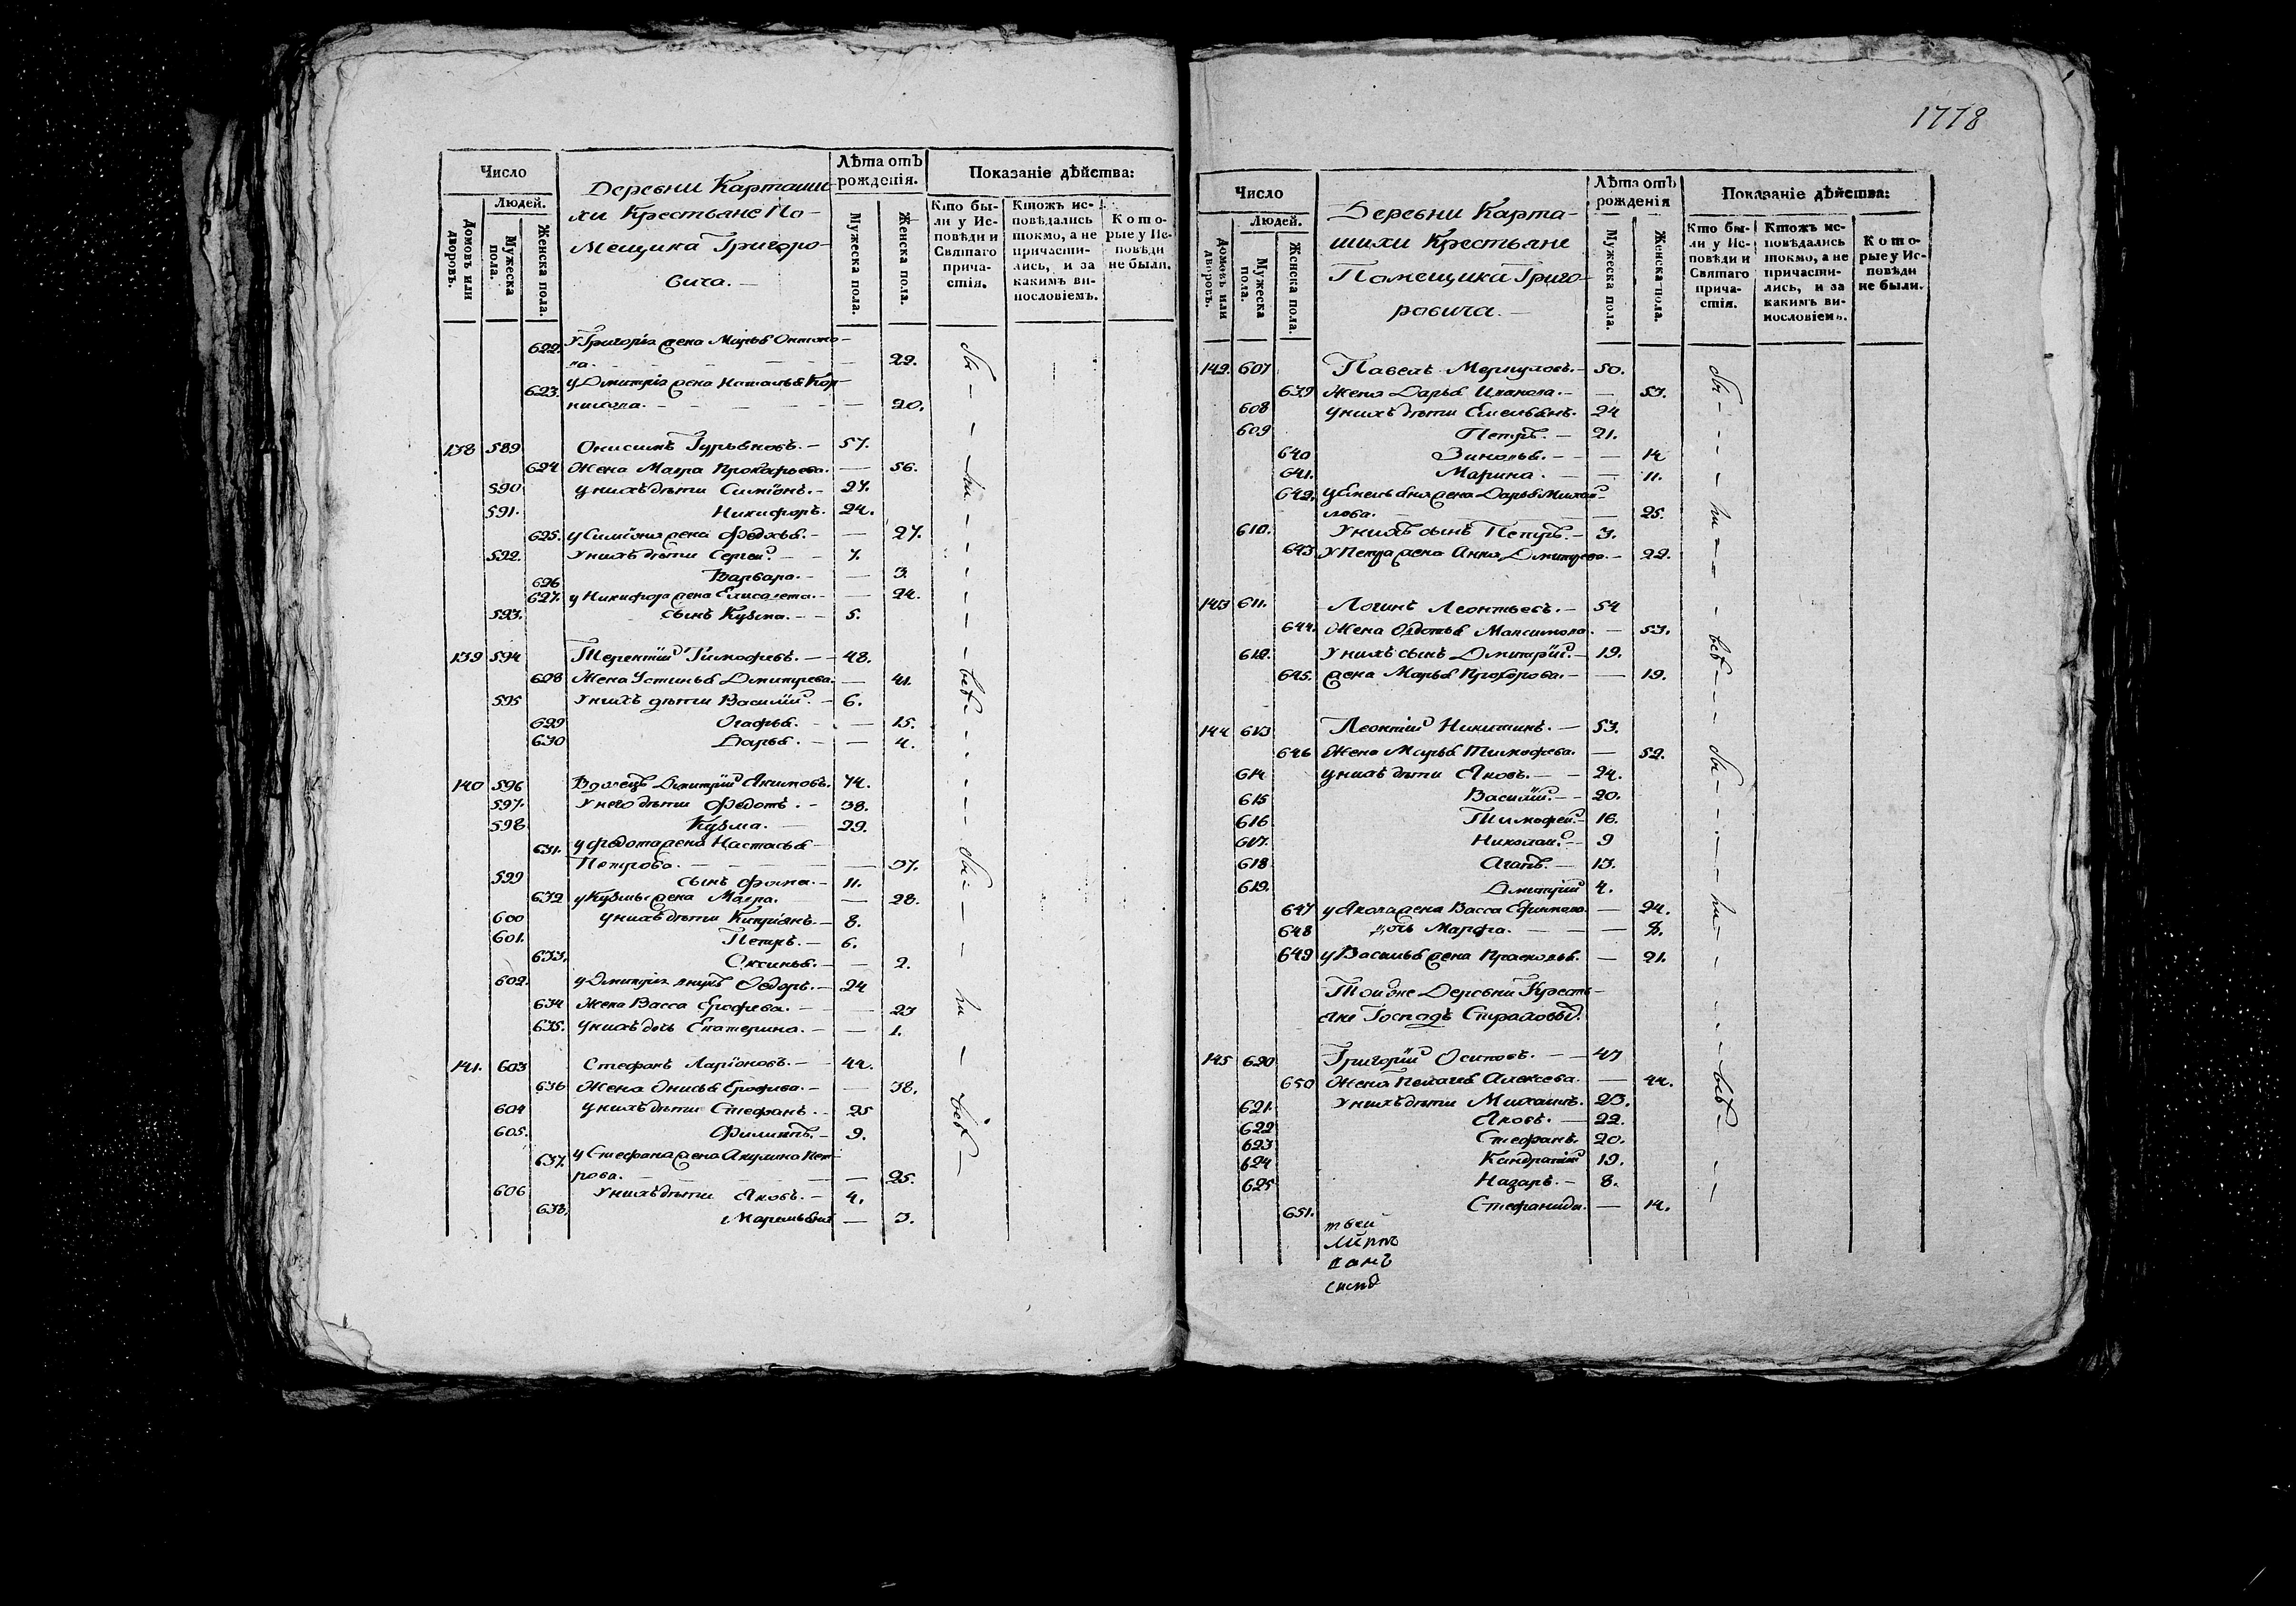 Число
Людей.
Домовъ или дворовъ.
Мужеска пола.
Женска пола.
Деревни Карташи-
хи Крестьяне По-
мещика Григоро-
вича. —
Лѣта отъ рожденія.
Мужеска пола.
Женска пола.
Показаніе дѣйства:
Кто бы-
ли у Ис-
повѣди и
Святаго
прича-
стія.
Ктожъ ис-
повѣдались
токмо, а не
причасти-
лись, и за
какимъ ви-
нословіемъ.
Кото-
рые у Ис-
повѣди
не были.
622. У Григорія жена Марья Онтоно-
ва. — 22.
623. У Дмитрія жена Наталья Кор-
нилова. — 20.
138 589 Онисимъ Гурьяновъ. — 57.
624 Жена Мавра Прокофьева. — 56.
590 у нихъ дѣти Симіонъ. — 27.
591. Никифоръ. 24.
625. у Симіона жена Федосья. — 27.
592. У нихъ дѣти Сергей — 7.
626 Варвара. — 3.
627. у Никифора жена Елисавета. — 24.
593. сынъ Кузма. — 5.
139 594 Терентій Тимофеевъ. — 48.
628 Жена Устинья Дмитрева. — 41.
595 У нихъ дѣти Василій. — 6.
629 Огафья. — 15.
630 Дарья. — 4.
140 596 Вдовецъ Дмитрій Якимовъ. 74.
597. У него дѣти Федотъ. — 38.
598 Кузма. — 29.
631. у Федота жена Настасья
Петрова. — 37.
599 сынъ Фома. — 11.
632 у Кузмы жена Мавра. — 28.
600 у нихъ дѣти Кипріянъ. — 8.
601. Петръ. — 6.
633. Оксинья. — 2.
602. у Дмитрія внукъ Федоръ. — 24
634 Жена Васса Ерофеева. — 23
635. У нихъ дочь Екатерина. — 1.
141. 603 Стефанъ Ларіоновъ. — 44.
636 Жена Онисья Ерофеева. — 38.
604 У нихъ дѣти Стефанъ. — 25
605. Филиппъ. — 9.
637. у Стефана жена Акулина Пет-
рова. — 25.
606 У нихъ дѣти Яковъ. — 4.
638. — 3.
1778
Число
Людей.
Домовъ или дворовъ.
Мужеска пола.
Женска пола.
Деревни Карта-
шихи Крестьяне
Помещика Григо-
ровича. —
Лѣта отъ рожденія
Мужеска пола.
Женска пола.
Показаніе дѣйства:
Кто бы-
ли у Ис-
повѣди и
Святаго
прича-
стія.
Ктожъ ис-
повѣдались
токмо, а не
причасти-
лись, и за
какимъ ви-
нословіемъ.
Кото-
рые у Ис-
повѣди
не были.
142. 607 Павелъ Меркуловъ. — 50.
639 Жена Дарья Иванова. — 53.
608 У нихъ дѣти Емельянъ. 24
609 Петръ. — 21.
640 Зиновья. — 14
641. Марина. — 11.
642. у Емельяна жена Дарья Михай-
лова. — 25.
610. У нихъ сынъ Петръ. — 3.
643 У Петра жена Анна Дмитрева. — 22.
143 611. Логинъ Леонтьевъ. — 54
644. Жена Овдотья Максимова. — 53.
612. У нихъ сынъ Дмитрій. — 19.
645. жена Марья Прохорова. — 19.
144 613 Леонтій Никитинъ. — 53.
646 Жена Марья Тимофеева. — 52.
614 у нихъ дѣти Яковъ. — 24.
615 Василій. — 20.
616 Тимофей. — 16.
617. Николай. — 9
618 Агапъ. — 13.
619. Дмитрій 4.
647 у Якова жена Васса Ефимова. — 24.
648 дочь Марфа. — 8.
649 у Василья жена Прасковья. — 21.
Тойже Деревни Кресть-
яне Господъ Страховыхъ.
145 620 Григорій Осиповъ. — 47
650 Жена Пелагея Алексеева. — 44.
621. У нихъ дѣти Михаилъ. 23.
622 Яковъ. — 22.
623 Стефанъ. 20.
624 Кандратій 19.
625 Назаръ. — 8.
651. Стефанида. — 14.